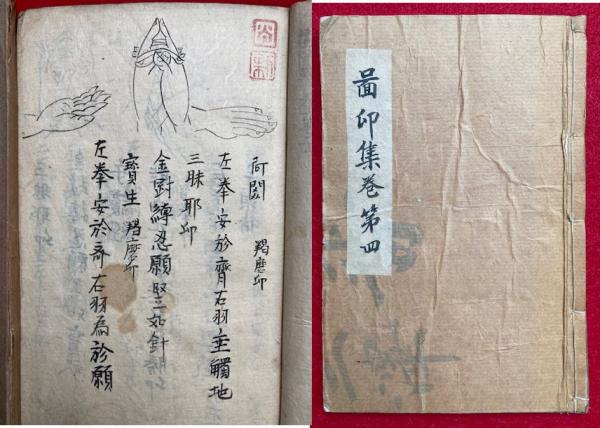 阿閦 羯磨印
左拳安於齊右羽垂觸地
三昧耶印
金剛縛忍願竪如針
寶生 羯磨印
左拳安於齊右羽為於願
啚印集卷第四